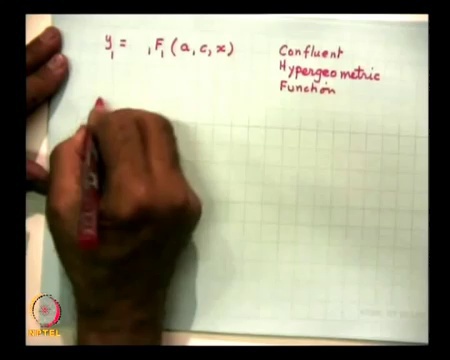 y₁ = ₁F₁ (a, c, x)
Confluent
Hypergeometric
Function
NPTEL